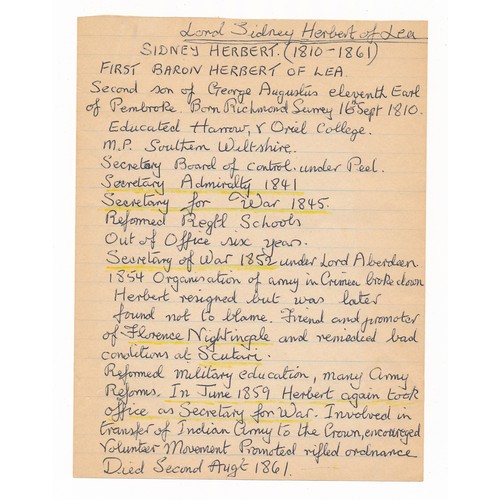 Lord Sidney Herbert of Lea
SIDNEY HERBERT. (1810-1861)
FIRST BARON HERBERT OF LEA.
Second son of George Augustus eleventh Earl
of Pembroke. Born Richmond Surrey 16th Sept 1810.
Educated Harrow, & Oriel College.
M.P. Southern Wiltshire.
Secretary Board of control. under Peel.
Secretary Admiralty 1841
Secretary for War 1845.
Reformed Regtl Schools
Out of Office six years.
Secretary of War 1852 under Lord Aberdeen.
1854 Organisation of army in Crimea broke down
Herbert resigned but was later
found not to blame. Friend and promoter
of Florence Nightingale and remedied bad
conditions at Scutari.
Reformed military education, many Army
Reforms. In June 1859 Herbert again took
office as Secretary for War. Involved in
transfer of Indian Army to the Crown, encouraged
Volunteer Movement Promoted rifled ordnance
Died Second Augt 1861.